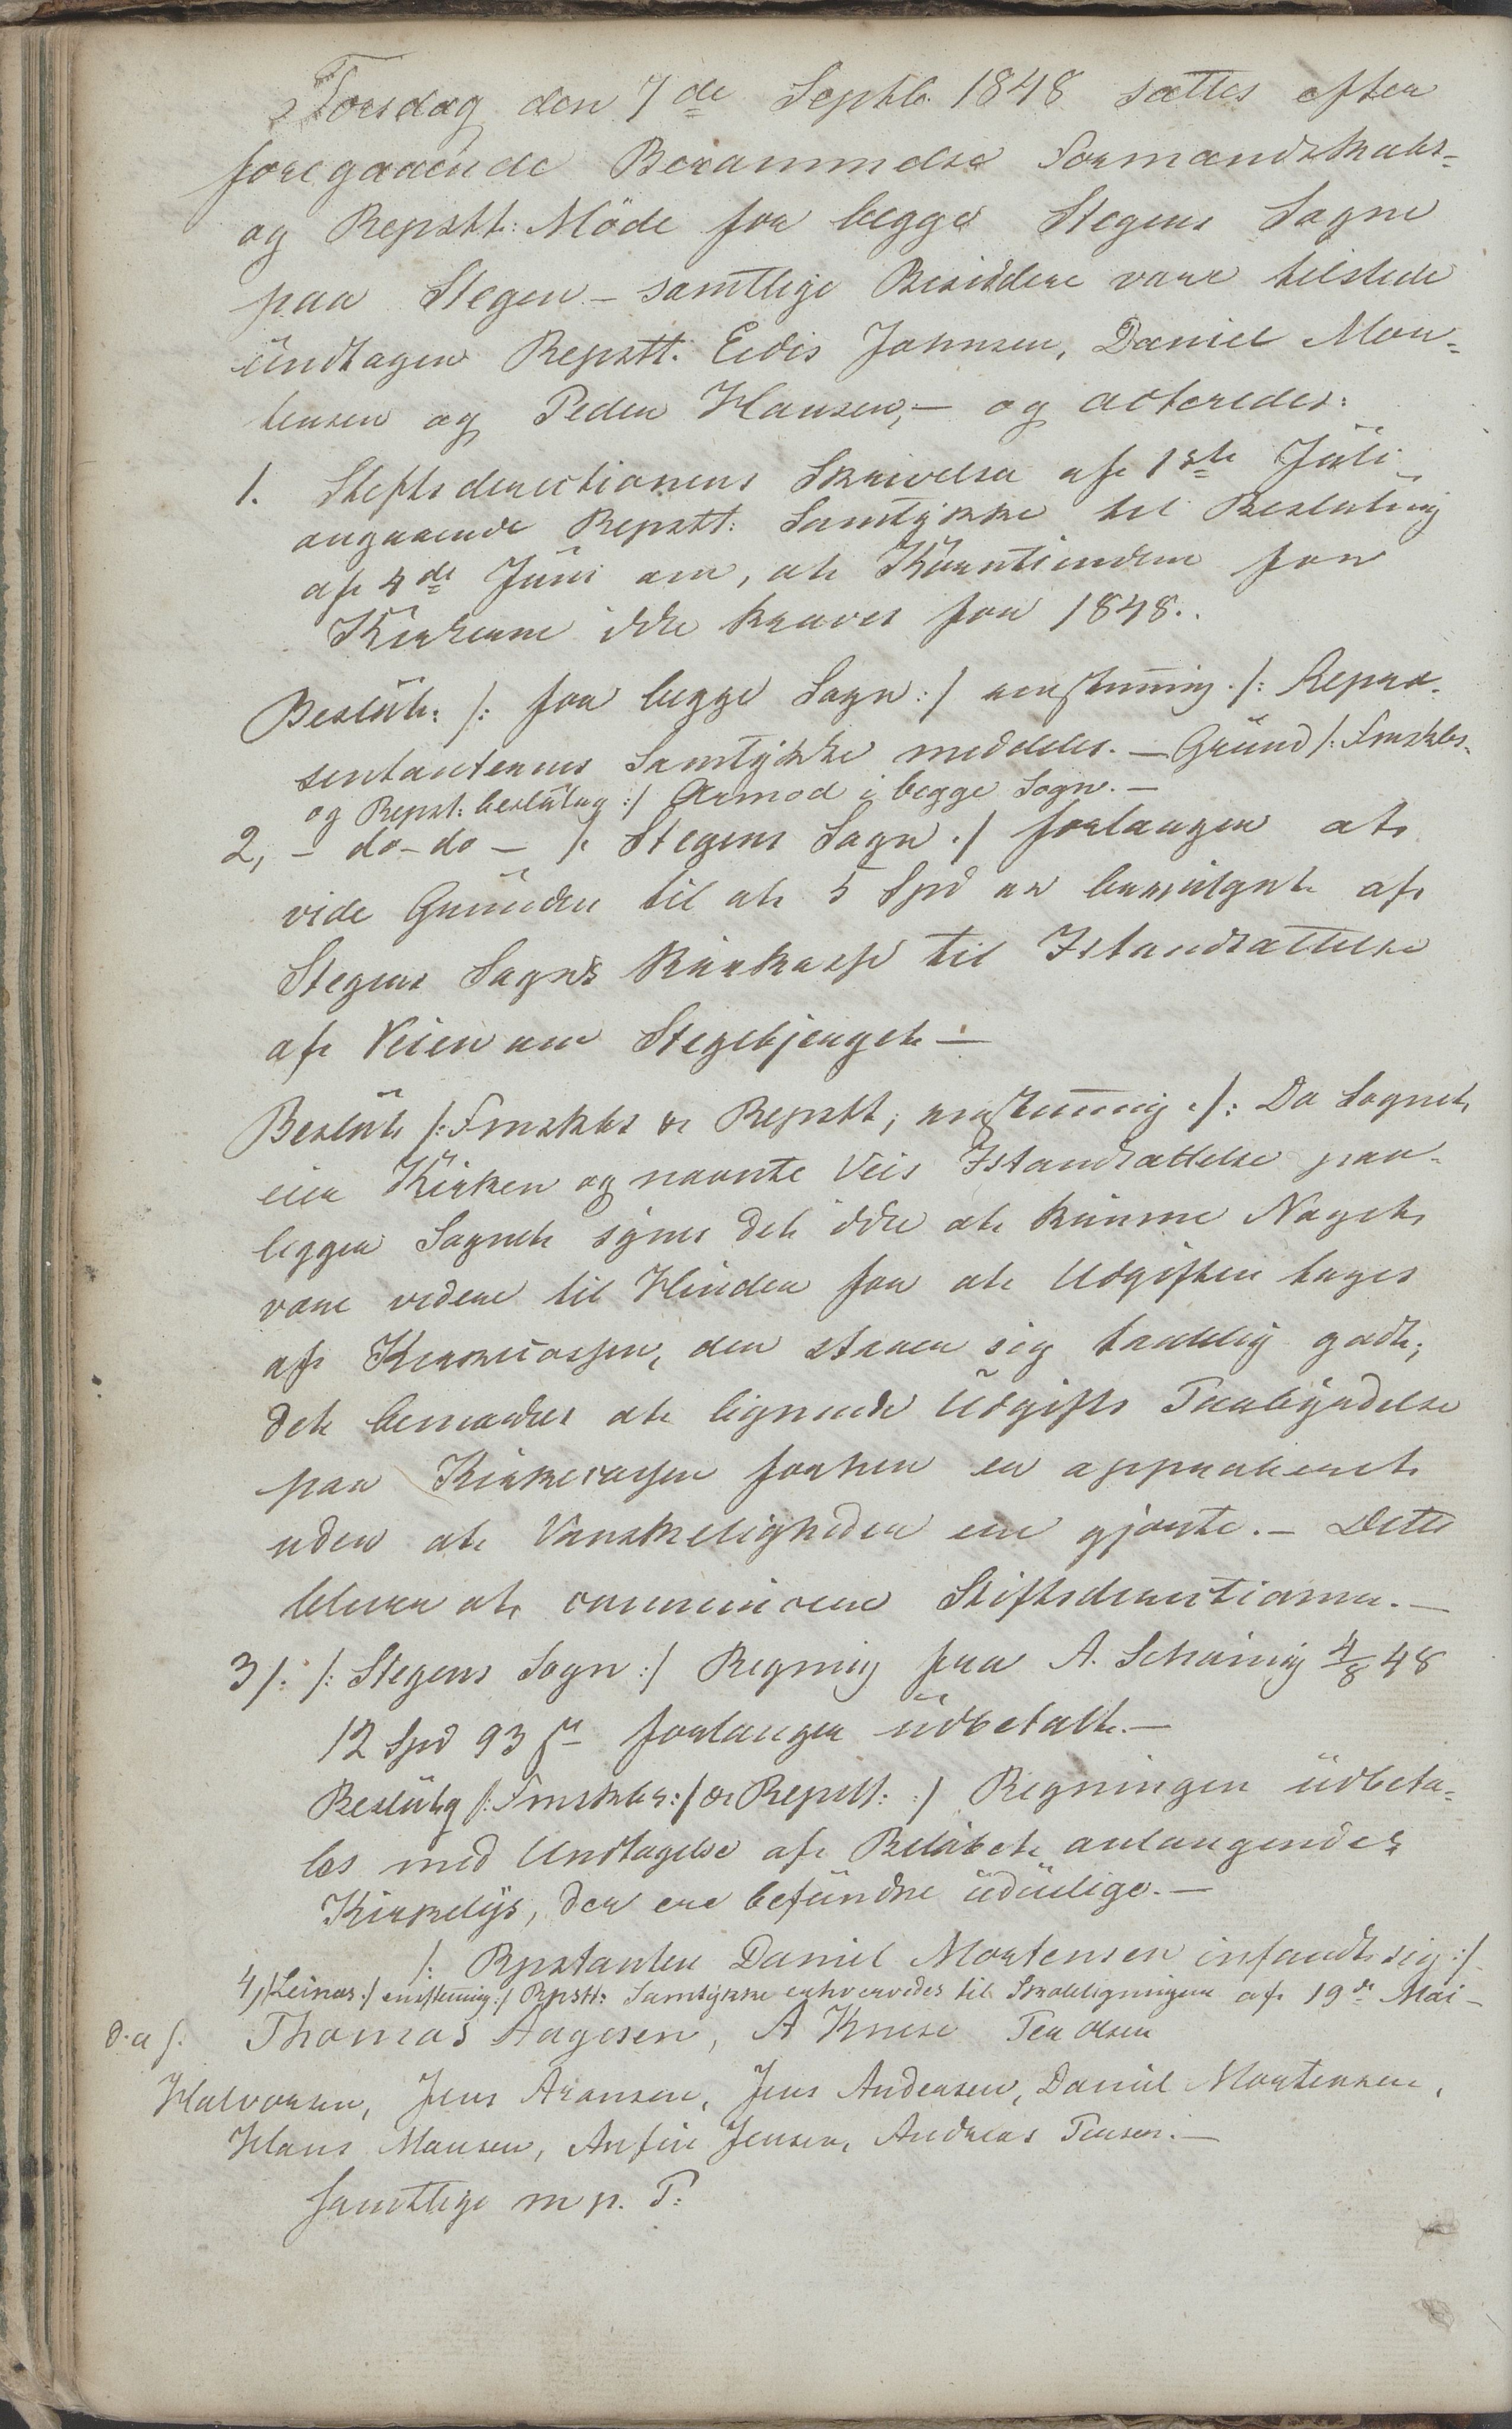 Torsdag den 7de Septb. 1848 sættes efter
foregaaende Berammelse Formandskabs-
og Repstt: Möde for begge Stegens Sogne
paa Stegen – samtlige Besiddere vare tilstede
undtagen Repstt. Eedis Johnsen, Daniel Mor-
tensen og Peder Hansen, – og acteredes:
1. Stiftsdirectionens Skrivelse af 1ste Juli
angaaende Repstt: Samtykke til Beslutning
af 4de Juni om, at Korntienden for
Kirkerne ikke kræves for 1848.
Beslut: /: for begge Sogn :/ eenstemig ./: Repræ-
sentanternes Samtykke meddeles. – Grund /: Fmskbs-
og Repst: beslutng :/ Armod i begge Sogn. –
2, – do – do – /: Stegens Sogn :/ forlanger at
vide Grunden til at 5 Spd er bevilget af
Stegens Sogns Kirkekasse til Istandsættelse
af Veien om Stegebjerget –
Beslut /: Fmskbs & Repstt, eenstemmig ./: Da Sognet
eier Kirken og nævnte Veis Istandsættelse paa-
ligger Sognet synes det ikke at kunne Noget
være videre til Hinder for at Udgiften tages
af Kirkecassen, den staaer sig temmelig godt;
det bemærkes at lignende Udgifts Paabyrdelse
paa Kirkecassen forhen er approberet
uden at Vanskeligheder ere gjorte. – Dette
bliver at communicere Stiftsdirectionen. –
3/. /: Stegens Sogn :/ Regning fra A. Schåning 4/8 48
12 Spd 93 s forlanges udbetalt. –
Beslutng /: Fmskbs :/ & Repstt: :/ Regningen udbeta-
les med Undtagelse af Beløbet anlangendes
Kirkelys, der ere befundne uduelige. –
/: Repstanten Daniel Mortensen infandt sig :/
4, /: Leines :/ enstemig :/ Repstt: Samtykke erhvervedes til Skoleligningen af 19de Mai –
Thomas Aagesen, A Knese Per Olsen
Halvorsen, Jens Aronsen, Jens Andersen, Daniel Mortensen,
Hans Monsen, Anfin Jensen, Andreas Pensen. –
samtlige m. p. P: